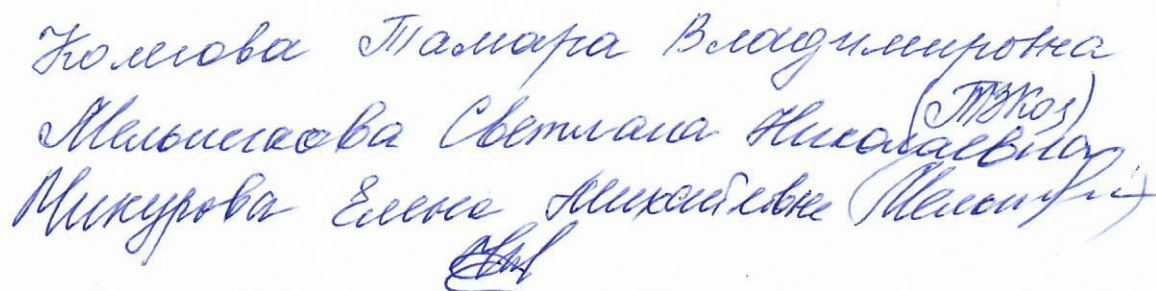 Тамара Владимировна
Мельникова Светлана Николаевна
Микурова Елена Михайловна